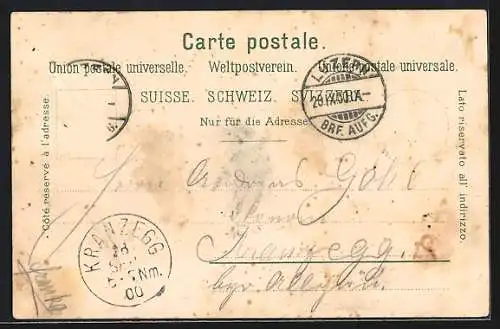 Carte postale.
Union postale universelle. Weltpostverein. Unione postale universale.
SUISSE. SCHWEIZ. SVIZZERA.
Nur für die Adresse.
Côté réservé à l'adresse.
Lato riservato all' indirizzo.
LUZERN
BRF. AUFG.
Herrn Andreas
Kranzegg
bayr. Allgäu.
KRANZEGG
SEP
Nm.
00